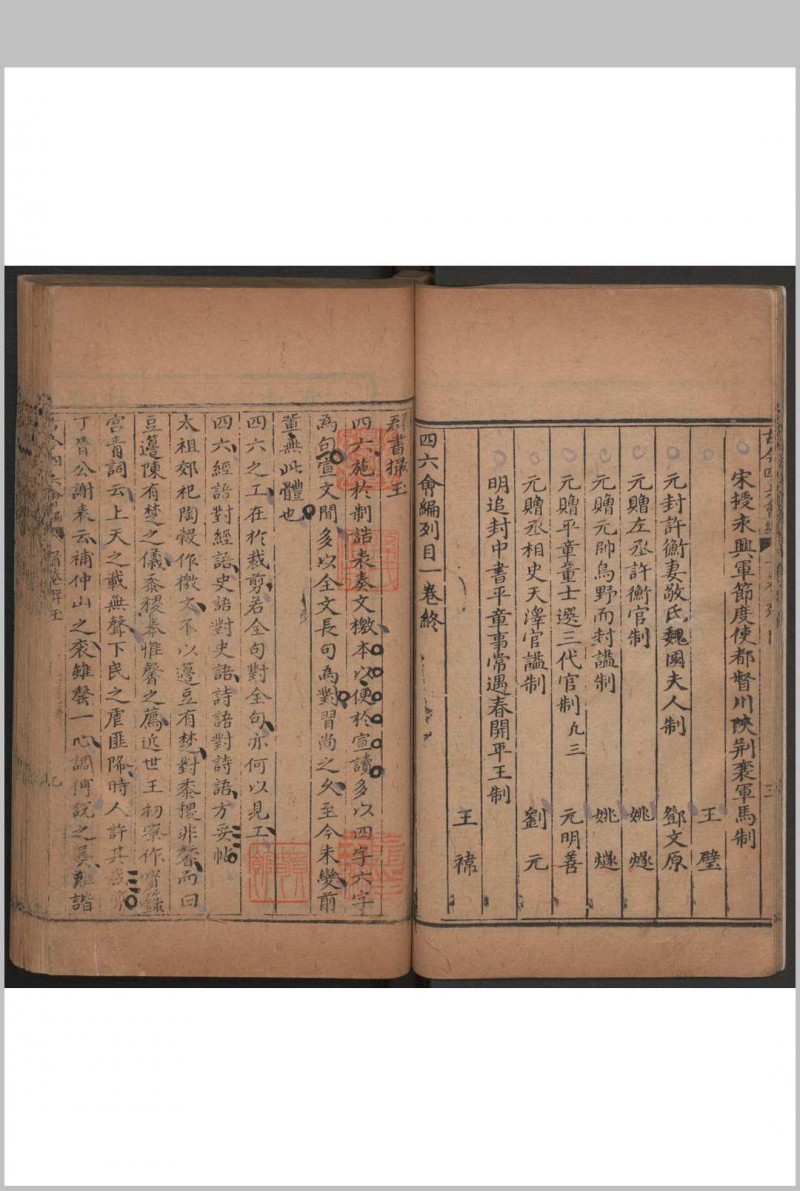 宋授永興軍節度使都督川陝荊襄軍馬制 王璧
元封許衡妻敬氏魏國夫人制 鄧文原
元贈左丞許衡官制 姚燧
元贈元帥烏野而封謚制 姚燧
元贈平章董士選三代官制 九三 元明善
元贈丞相史天澤官謚制 劉元
明追封中書平章事常遇春開平王制 王褘
四六會編列目一卷終
群書撮玉
四六施於制誥表奏文檄本以便於宣讀多以四字六字
為句宣文間多以全文長句為對習尚之久至今未變前
輩無此體也
四六之工在於裁剪若全句對全句亦何以見工
四六經語對經語史語對史語詩語對詩語方妥帖
太祖郊祀陶穀作檄文不以籩豆有楚對黍稷非馨而曰
豆籩陳有楚之儀黍稷奉惟馨之薦近世王初寮作寶籙
宮青詞云上天之載無聲下民之虐匪降時人許其裁剪
丁晉公謝表云補仲山之袞雖罄一心調傅說之羹難諧